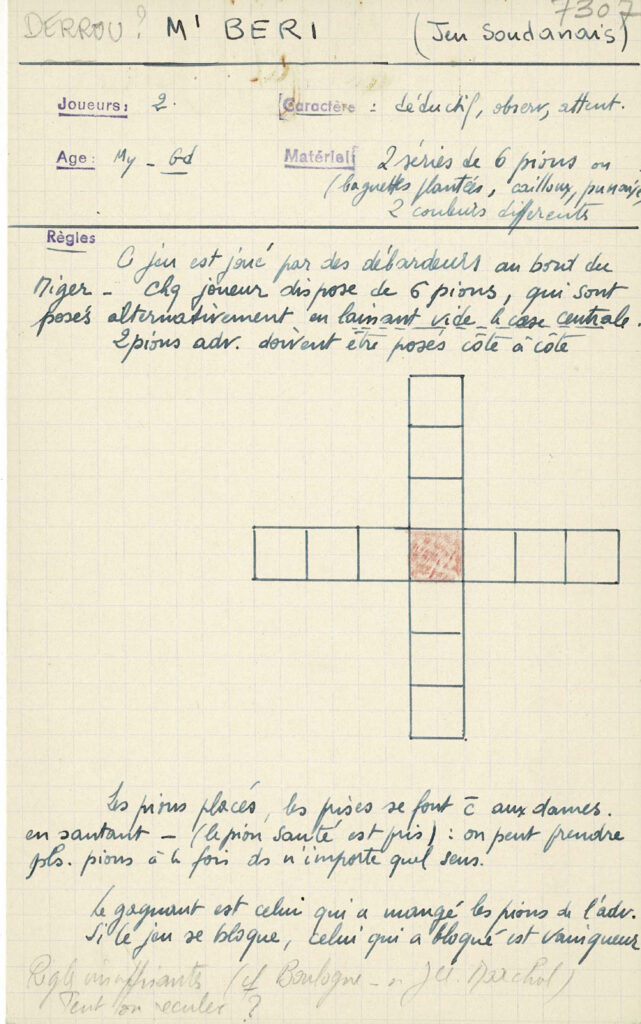 7307
DERROU? M' BERI (Jeu Soudanais)
Joueurs: 2. Caractère : déductif, observ, attent.
Age: My - Gd Matériel 2 séries de 6 pions ou
(baguettes plantées, cailloux, punaise,
2 couleurs différents
Règles
Ce jeu est joué par des débardeurs au bord du
Niger - Chq joueur dispose de 6 pions, qui sont
posés alternativement en laissant vide la case centrale.
2 pions adv. doivent être posés côte à côte
Les pions placés, les prises se font c̄ aux dames.
en sautant - (le pion sauté est pris) : on peut prendre
pls. pions à la fois ds n'importe quel sens.
Le gagnant est celui qui a mangé les pions de l'adv.
Si le jeu se bloque, celui qui a bloqué est vainqueur
Règle insuffisante (cf Boulogne -
Peut on reculer ?